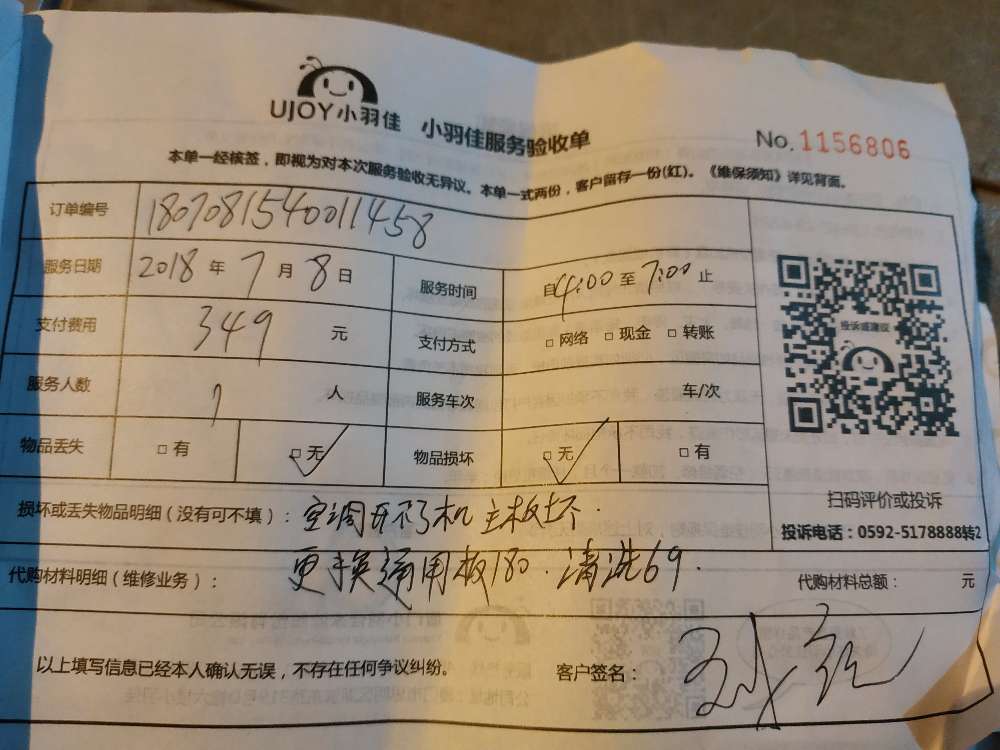 UJOY小羽佳 小羽佳服务验收单 No.1156806
本单一经核签，即视为对本次服务验收无异议。本单一式两份，客户留存一份(红)。《维保须知》详见背面。
订单编号 1807081540011458
服务日期 2018年7月8日 服务时间 自4:00至7:00止
支付费用 349元 支付方式 □网络 □现金 □转账
服务人数 1人 服务车次 车/次
物品丢失 □有 □无 物品损坏 □无 □有
投诉或建议
扫码评价或投诉
投诉电话：0592-5178888转2
损坏或丢失物品明细（没有可不填）：空调开不了机 主板坏.
更换通用板180.清洗69.
代购材料明细（维修业务）： 代购材料总额： 元
以上填写信息已经本人确认无误，不存在任何争议纠纷。 客户签名：